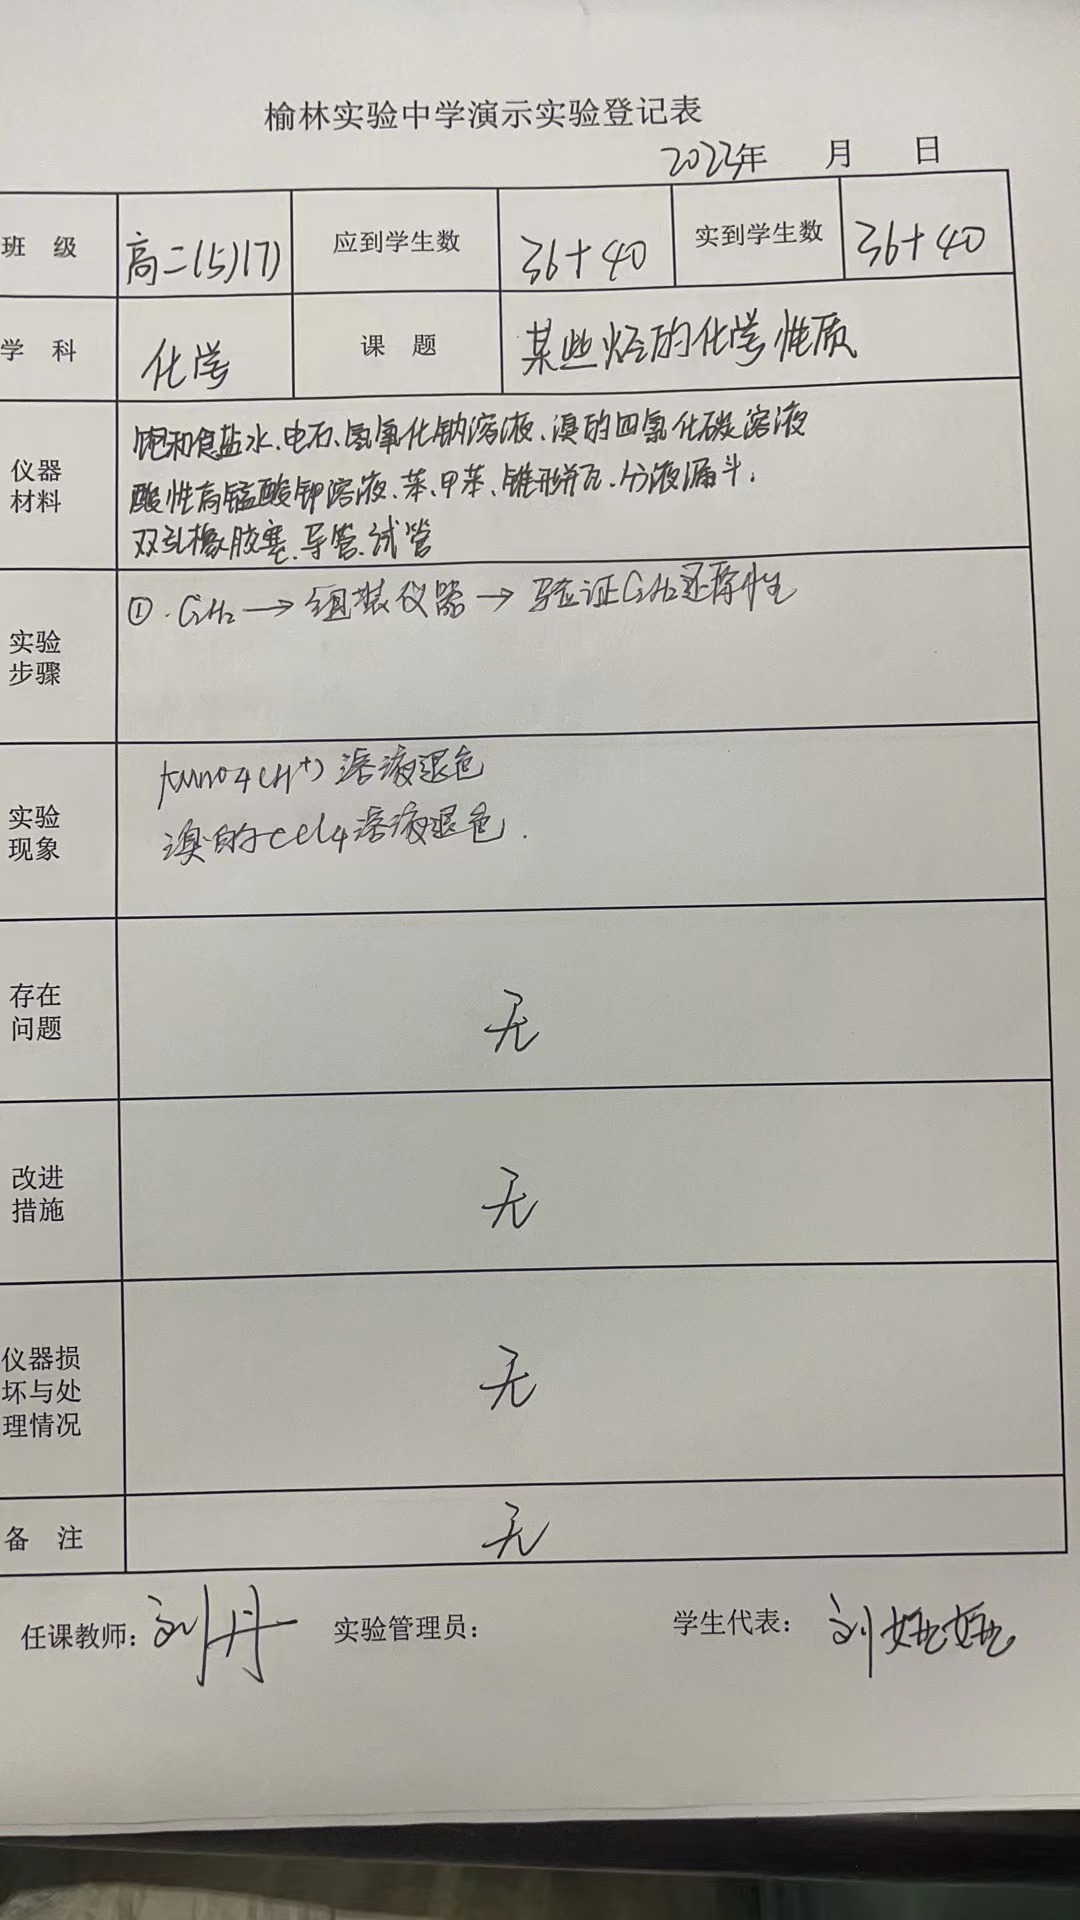 榆林实验中学演示实验登记表
2023年 月 日
班 级 高二(5)(7) 应到学生数 36+40 实到学生数 36+40
学 科 化学 课 题 某些烃的化学性质
仪器材料
饱和食盐水、电石、氢氧化钠溶液、溴的四氯化碳溶液
酸性高锰酸钾溶液、苯、甲苯、锥形瓶、分液漏斗、
双孔橡胶塞、导管、试管
实验步骤
① C2H2→组装仪器→验证C2H2还原性
实验现象
KMnO4(H+)溶液退色
溴的CCl4溶液退色.
存在问题
无
改进措施
无
仪器损坏与处理情况
无
备 注 无
任课教师:刘丹 实验管理员: 学生代表: 刘